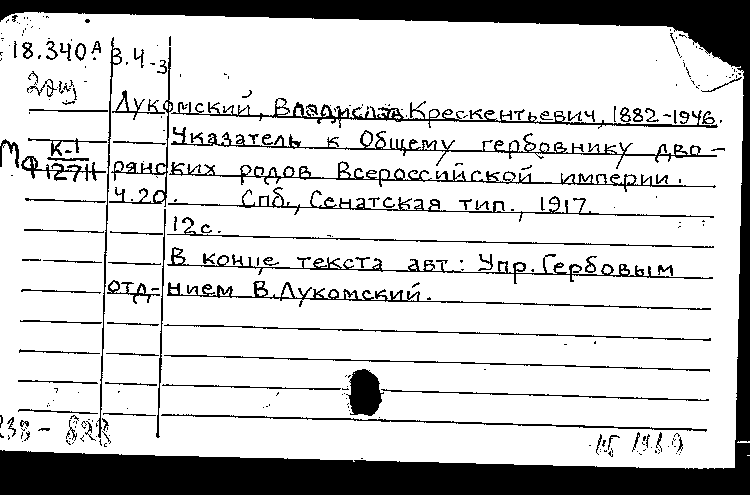 18.340.А 3.4-3
2 экз
Лукомский, Владислав Крескентьевич, 1882-1946.
Указатель к Общему гербовнику дво-
Мф К-1 рянских родов Всероссийской империи.
12711
Ч.20. Спб., Сенатская тип., 1917.
12с.
В конце текста авт.: Упр. Гербовым
отд-нием В.Лукомский.
238 - 82В